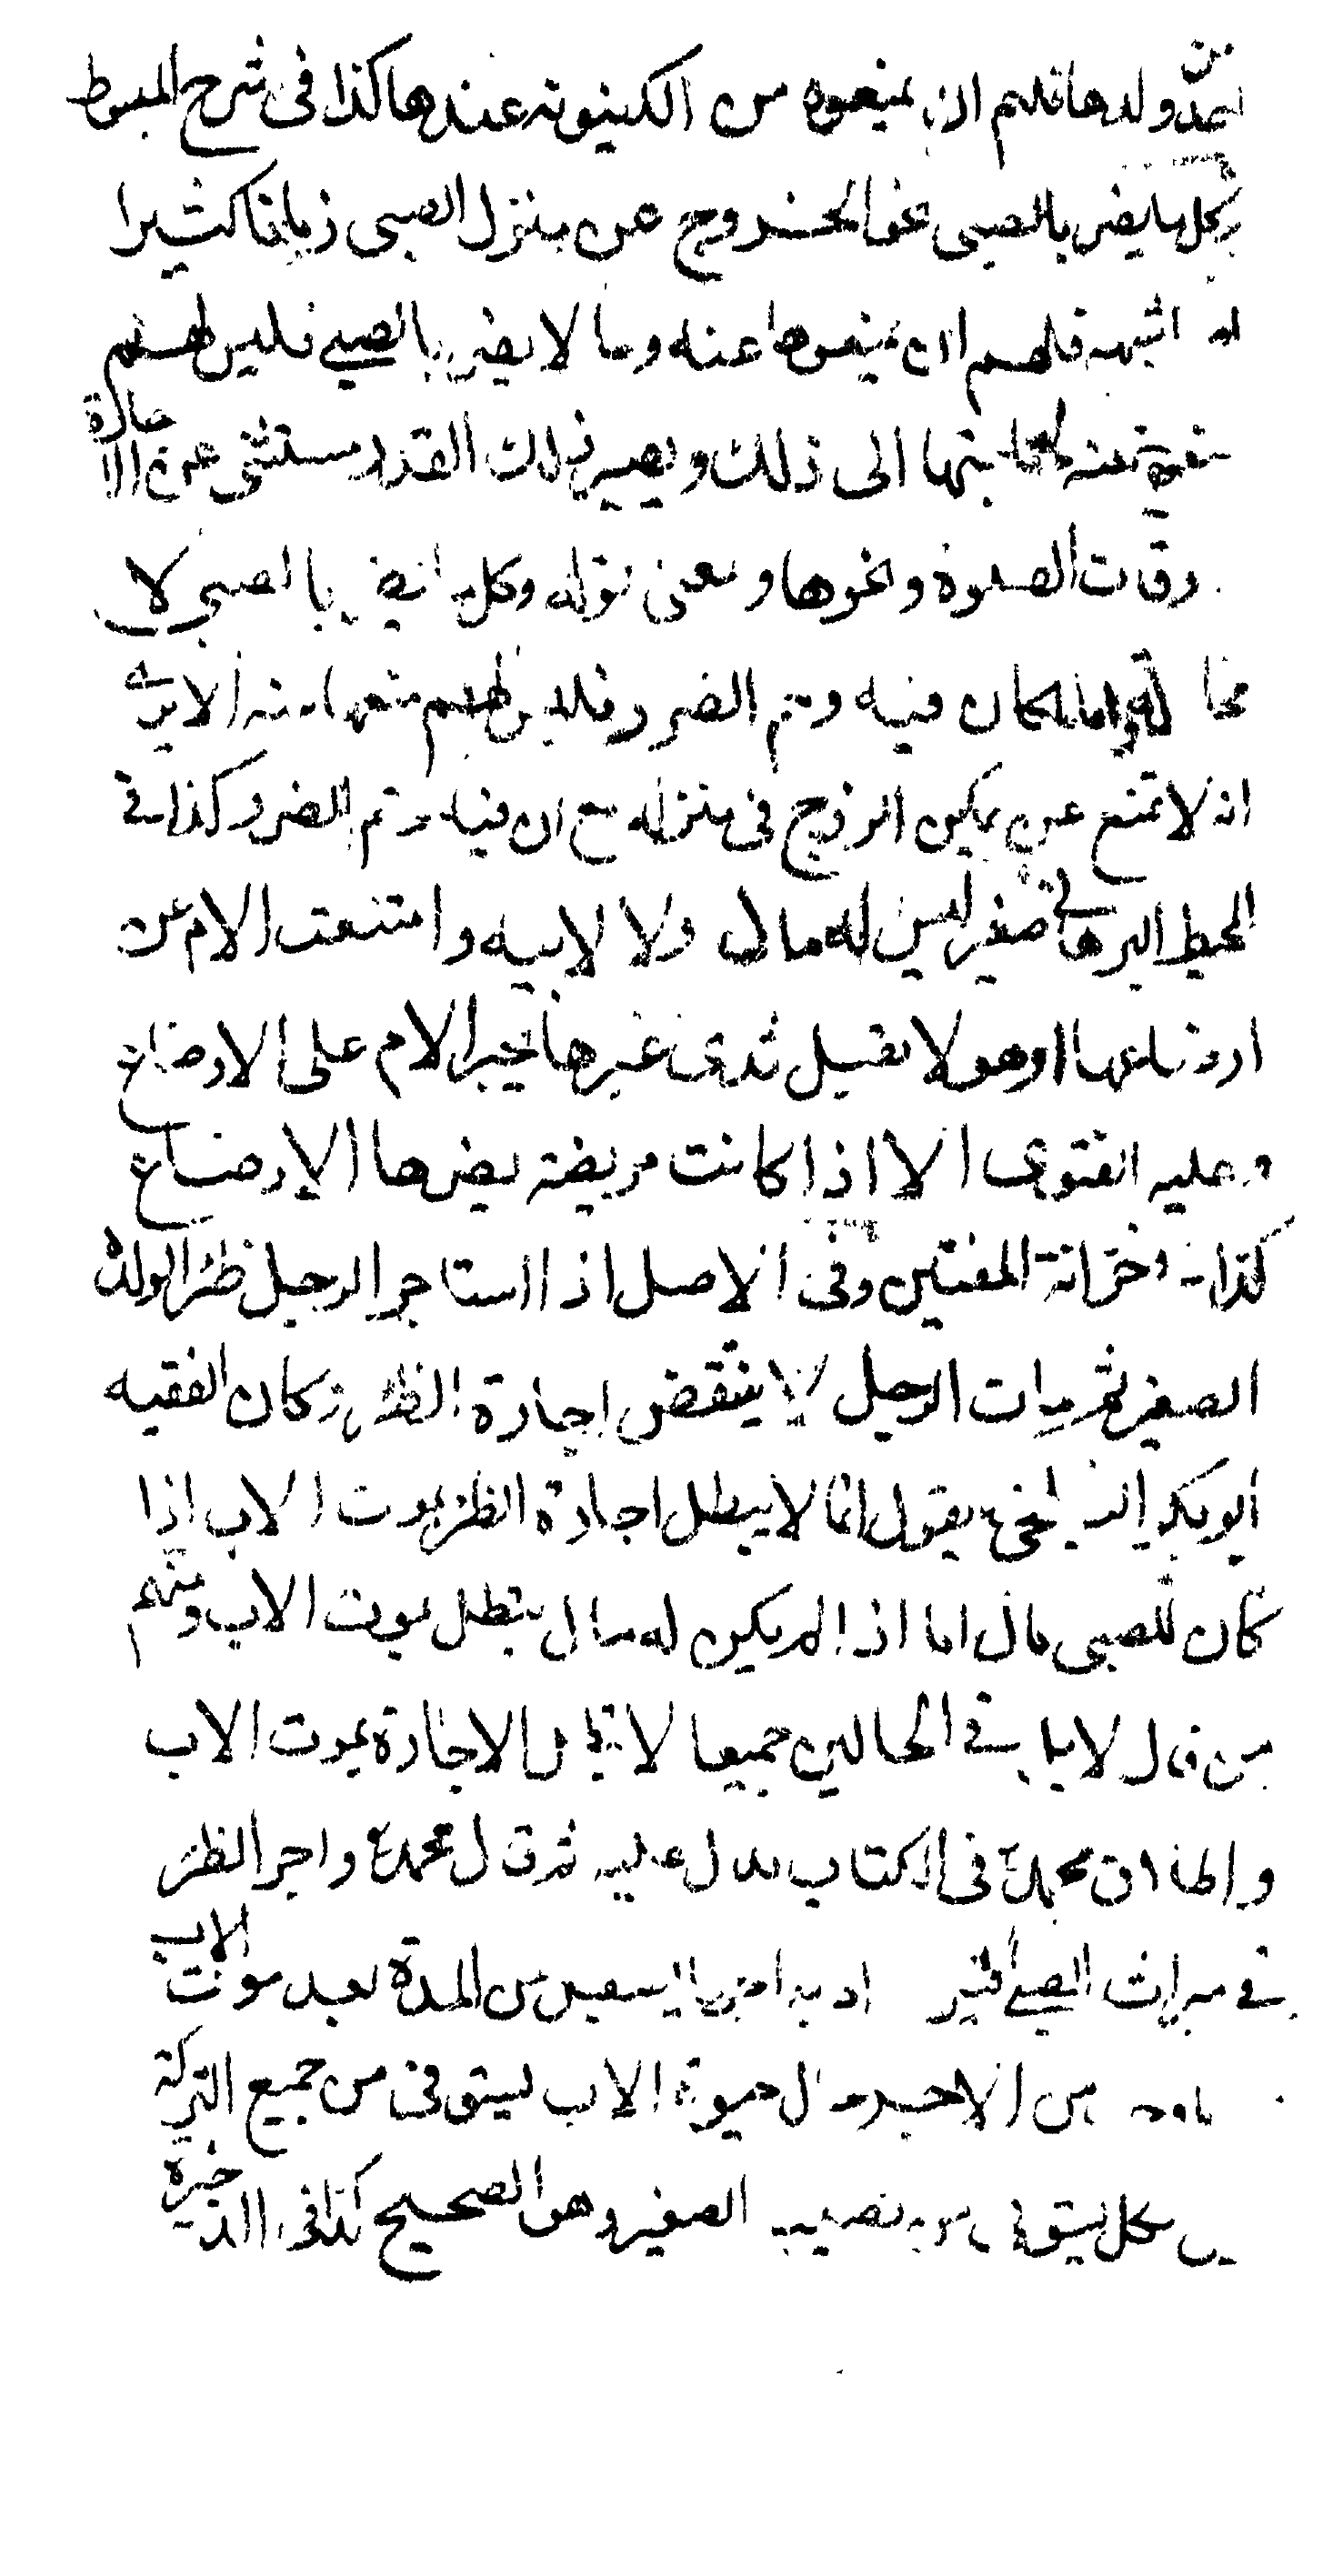 ولدها فلهم ان يمنعوه من الكينونة عندها كذا فى شرح المبسوط
وكل ما يضر بالصبى نحو الخروج عن منزل الصبى زمانا كثيرا
او اشبهه فلهم ان يمنعوها عنه وما لا يضر بالصبى فليس لهم
منعها عنه لحاجتها الى ذلك ويصير ذلك القدر مستثنى عن الاجارة
اوقات الصلوة ونحوها ومعنى قوله وكل ما يضر بالصبى لا
محالة واما ما كان فيه وهم الضرر فليس لهم منعها منه الا يرى
انه لا تمنع عن تمكين الزوج فى منزله مع ان فيه وهم الضرر وكذا فى
المحيط البرهانى صغير ليس له مال ولا لابيه وامتنعت الام عن
ارضاعها وهو لا يقبل ثدى غيرها يجبر الام على الارضاع
وعليه الفتوى الا اذا كانت مريضة يضرها الارضاع
كذا فى خزانة المفتين وفى الاصل اذا استاجر الرجل ظئرا لولده
الصغير ثم مات الرجل لا ينتقض اجارة الظئر وكان الفقيه
ابو بكر البلخى يقول انما لا يبطل اجارة الظئر بموت الاب اذا
كان للصبى مال اما اذا لم يكن له مال يبطل بموت الاب ومنهم
من قال لا بل فى الحالين جميعا لا تبطل الاجارة بموت الاب
واطلاق محمد فى الكتاب يدل عليه ثم قال محمد واجر الظئر
فى ميراث الصبى قيل اراد به اجر ما يستقبل من المدة بعد موت الاب
من الاجر حال حيوة الاب يستوفى من جميع التركة
الكل يستوفى من نصيب الصغير وهو الصحيح كذا فى الذخيرة